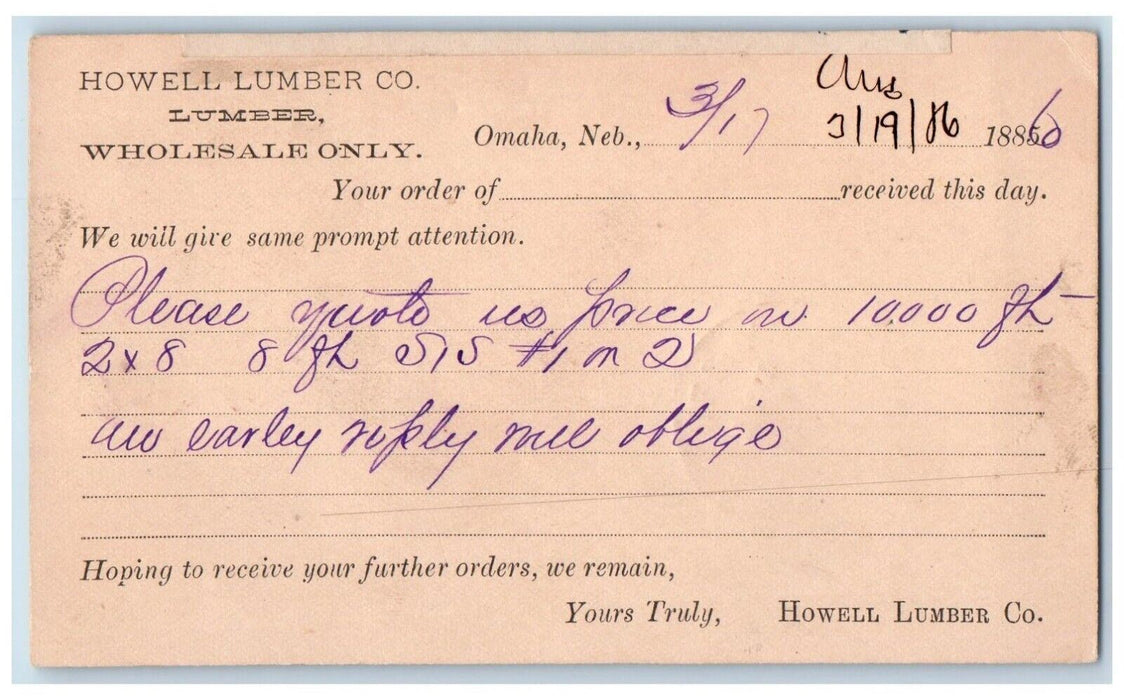 HOWELL LUMBER CO.
LUMBER,
WHOLESALE ONLY.
Ans
3/19/86
Omaha, Neb., 3/17 18856
Your order of received this day.
We will give same prompt attention.
Please quote us price on 10000 ft
2x8 8 ft S1S #1 or 2
an earley reply will oblige
Hoping to receive your further orders, we remain,
Yours Truly, HOWELL LUMBER CO.